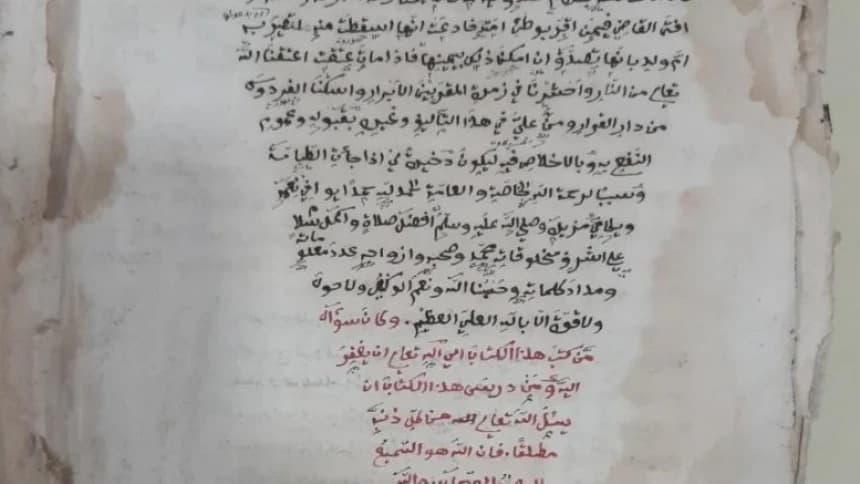 افتى القاضي فيمن اقر بوطئ امته فادعت انها اسقطت منه ما تصير به
ام ولد بانها تصدق ان امكن ذلك بيمينها فاذا مات عتقت اعتقنا الله
تعالى من النار واحشرنا في زمرة المقربين الابرار واسكننا الفردوس
من دار القرار ومن علي في هذا التأليف وغيره بقبوله وعموم
النفع به وبالاخلاص فيه ليكون ذخيرة لي اذا جاءت الطامة
وسببا لرحمة الله الخاصة والعامة الحمد لله حمدا يوافي نعمه
ويكافي مزيده وصلى الله عليه وسلم افضل صلاة واكمل سلام
على اشرف مخلوقاته محمد وصحبه وازواجه عدد معلوماته
ومداد كلماته وحسبنا الله ونعم الوكيل ولا حول
ولا قوة الا بالله العلي العظيم. وكان سؤاله
من كتب هذا الكتاب الى الله تعالى ان يغفر
اليه ومن هذا الكتاب ان
يسئل الله تعالى ذنبه
مطلقا. فان الله هو السميع